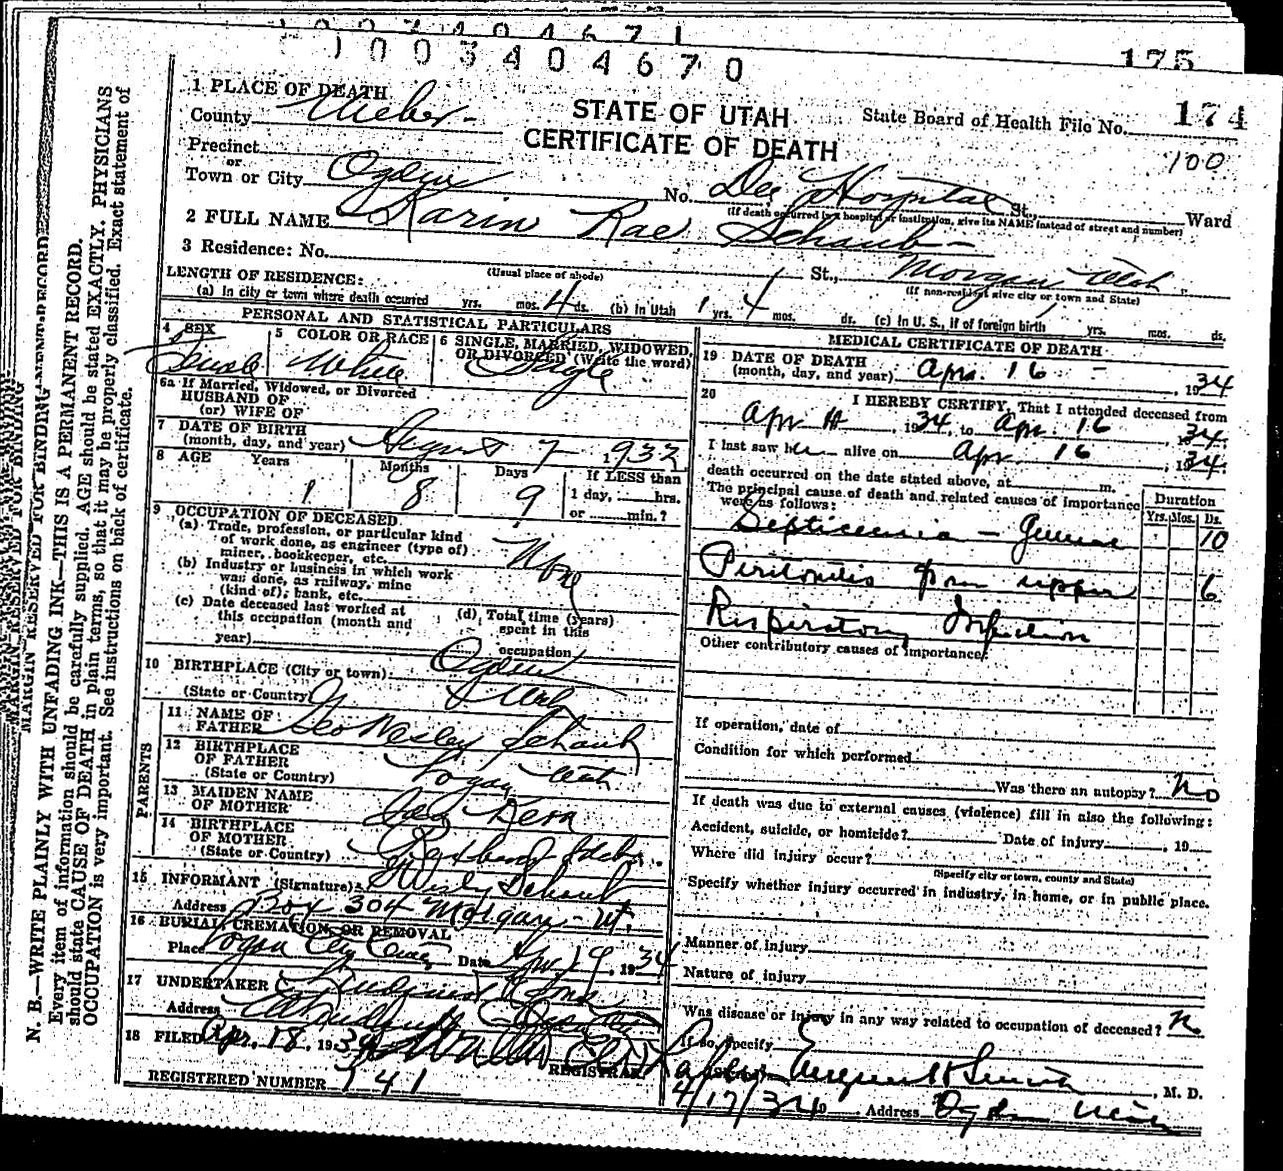 1 0 0 3 4 0 4 6 7 1
1 0 0 3 4 0 4 6 7 0
175
174
1 PLACE OF DEATH
STATE OF UTAH
CERTIFICATE OF DEATH
State Board of Health File No.
100
County Weber
Precinct
or
Town or City Ogden No. Dee Hospital St., Ward
(If death occurred in a hospital or institution, give its NAME instead of street and number)
2 FULL NAME Karin Rae Schaub
3 Residence: No. St., Morgan Utah
(Usual place of abode) (If non-resident give city or town and State)
LENGTH OF RESIDENCE:
(a) In city or town where death occurred yrs. mos. 4 ds. (b) In Utah 1 yrs. 4 mos. ds. (c) In U. S., if of foreign birth yrs. mos. ds.
PERSONAL AND STATISTICAL PARTICULARS
4 SEX Female
5 COLOR OR RACE White
6 SINGLE, MARRIED, WIDOWED, OR DIVORCED (Write the word) Single
6a If Married, Widowed, or Divorced
HUSBAND OF
(or) WIFE OF
7 DATE OF BIRTH
(month, day, and year) August 7 1932
8 AGE Years Months Days If LESS than
1 8 9 1 day, hrs.
or min.?
9 OCCUPATION OF DECEASED
(a) Trade, profession, or particular kind
of work done, as engineer (type of)
miner, bookkeeper, etc. None
(b) Industry or business in which work
was done, as railway, mine
(kind of), bank, etc.
(c) Date deceased last worked at
this occupation (month and
year)
(d) Total time (years)
spent in this
occupation
10 BIRTHPLACE (City or town) Ogden
(State or Country) Utah
PARENTS
11 NAME OF
FATHER Geo Wesley Schaub
12 BIRTHPLACE
OF FATHER
(State or Country) Logan Utah
13 MAIDEN NAME
OF MOTHER
14 BIRTHPLACE
OF MOTHER
(State or Country) Rexburg Idaho.
15 INFORMANT (Signature) Schaub
Address Box 304 Morgan - Ut.
16 BURIAL, CREMATION, OR REMOVAL
Place Logan City Cem Date Apr. 19, 1934
17 UNDERTAKER Lindquist & Sons
Address
18 FILED Apr. 18, 1934
REGISTRAR
REGISTERED NUMBER 141
MEDICAL CERTIFICATE OF DEATH
19 DATE OF DEATH
(month, day, and year) Apr. 16 - , 1934
20 I HEREBY CERTIFY, That I attended deceased from
Apr 14, 1934, to Apr. 16, 1934.
I last saw her alive on Apr 16, 1934.
death occurred on the date stated above, at m.
The principal cause of death and related causes of importance
were as follows:
Duration
Yrs. Mos. Ds.
Septicemia - General 10
Peritonitis from upper 6
Respiratory Infection
Other contributory causes of importance:
If operation, date of
Condition for which performed
Was there an autopsy? No
If death was due to external causes (violence) fill in also the following:
Accident, suicide, or homicide? Date of injury , 19
Where did injury occur?
(Specify city or town, county and State)
Specify whether injury occurred in industry, in home, or in public place.
Manner of injury
Nature of injury
Was disease or injury in any way related to occupation of deceased? No
If so, specify
Smith, M. D.
4/17/34 Address Ogden Utah
MARGIN RESERVED FOR BINDING
N. B.—WRITE PLAINLY WITH UNFADING INK—THIS IS A PERMANENT RECORD.
Every item of information should be carefully supplied. AGE should be stated EXACTLY. PHYSICIANS
should state CAUSE OF DEATH in plain terms, so that it may be properly classified. Exact statement of
OCCUPATION is very important. See instructions on back of certificate.